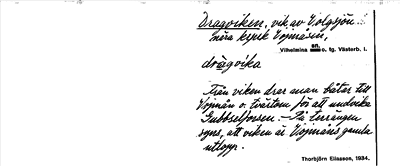 Dragviken, vik av Volgsjön
nära kyrk Vojmåsen,
Vilhelmina sn. o. tg. Västerb. l.
dràgvika
Från viken drar man båtar till
Vojmån o. tvärtom för att undvika
Gubbseljossen. – På terrängen
syns, att viken är Vojmåns gamla
utlopp.
Thorbjörn Eliasson, 1934.